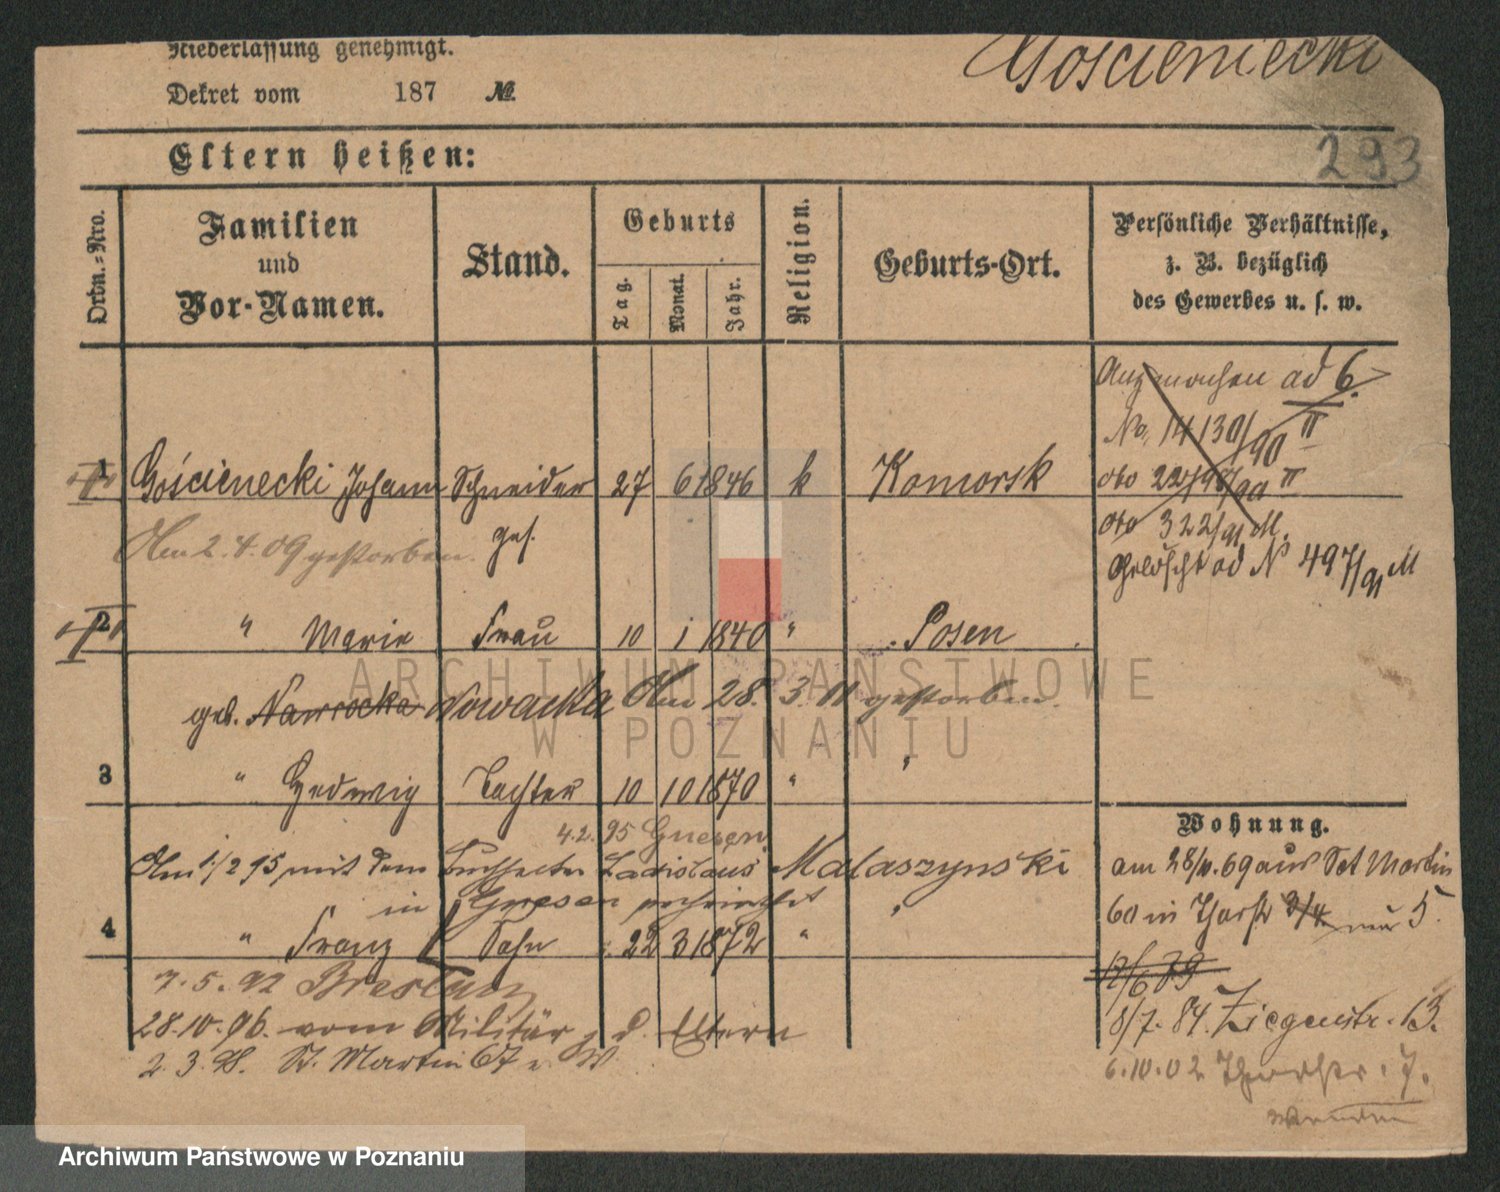 Niederlassung genehmigt.
Gościeniecki
Dekret vom 187 №
293
Eltern heißen:
Ordn.-Nro.
Familien und Vor-Namen.
Stand.
Geburts
Tag.
Monat.
Jahr.
Religion.
Geburts-Ort.
Persönliche Verhältnisse, z. B. bezüglich des Gewerbes u. s. w.
ad 6.
No. 14130/90 II
dto 322/91 M.
Gelöscht ad N 497/91 M
1 Gościenecki Johann Schneider 27 6 1846 k Komorsk
ges.
Am 2.4.09 gestorben.
2 " Marie Frau 10 1 1840 " Posen
geb. Nawrocka Nowacka Am 28.3.11 gestorben.
3 " Hedwig Tochter 10 10 1870 " "
4.2.95 Gnesen.
Am 1/2 95 mit dem Buchhalter Ladislaus Malaszynski
in Gnesen verheirathet
4 " Franz Sohn 22 3 1872 " "
7.5.92 Breslau
28.10.96. vom Militär z. d. Eltern
2.3.98. St. Martin 67 v. W
Wohnung.
am 28/11.69 aus Sct Martin
60 in Thorstr 3/4 nur 5.
8/7. 84. Ziegenstr. 13.
6.10.02 Thorstr. 7.
wenden
Archiwum Państwowe w Poznaniu
ARCHIWUM PAŃSTWOWE
W POZNANIU